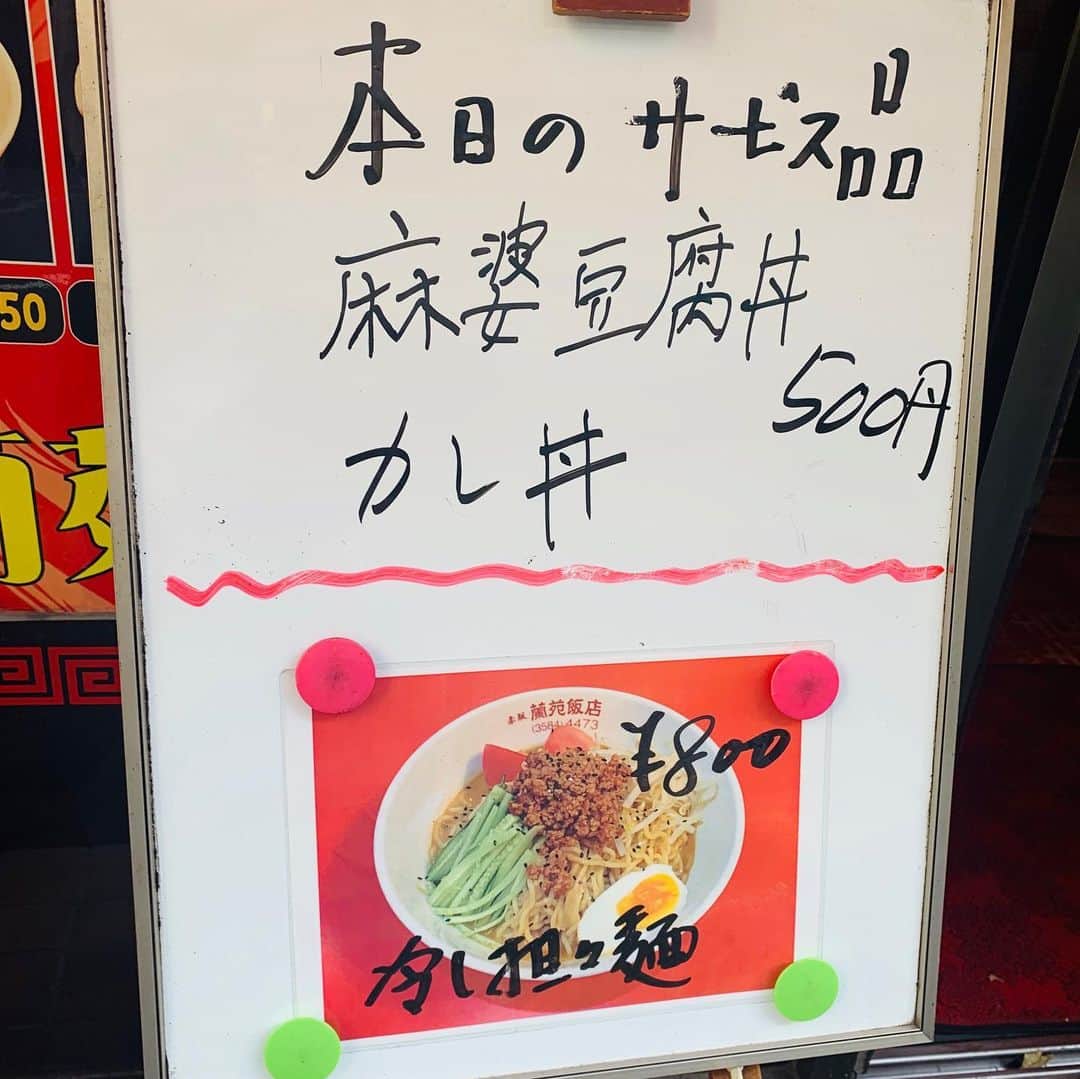 本日のサービス品
麻婆豆腐丼
500円
カレ丼
50
赤坂 蘭苑飯店
(3584)4473
¥800
冷し担々麺